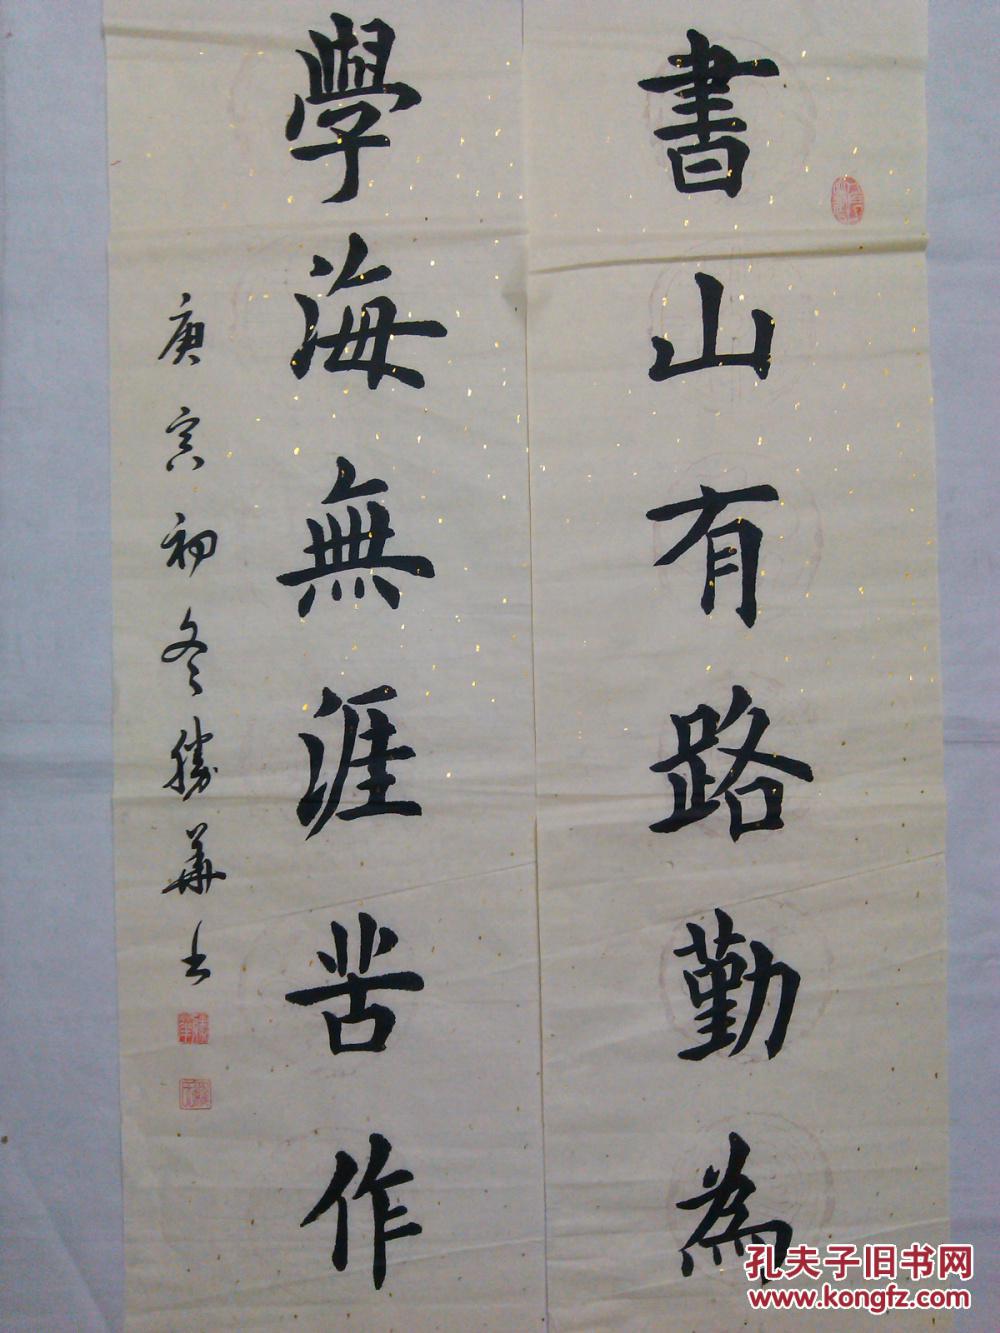 書山有路勤為
學海無涯苦作
庚寅初冬勝華书
孔夫子旧书网
www.kongfz.com